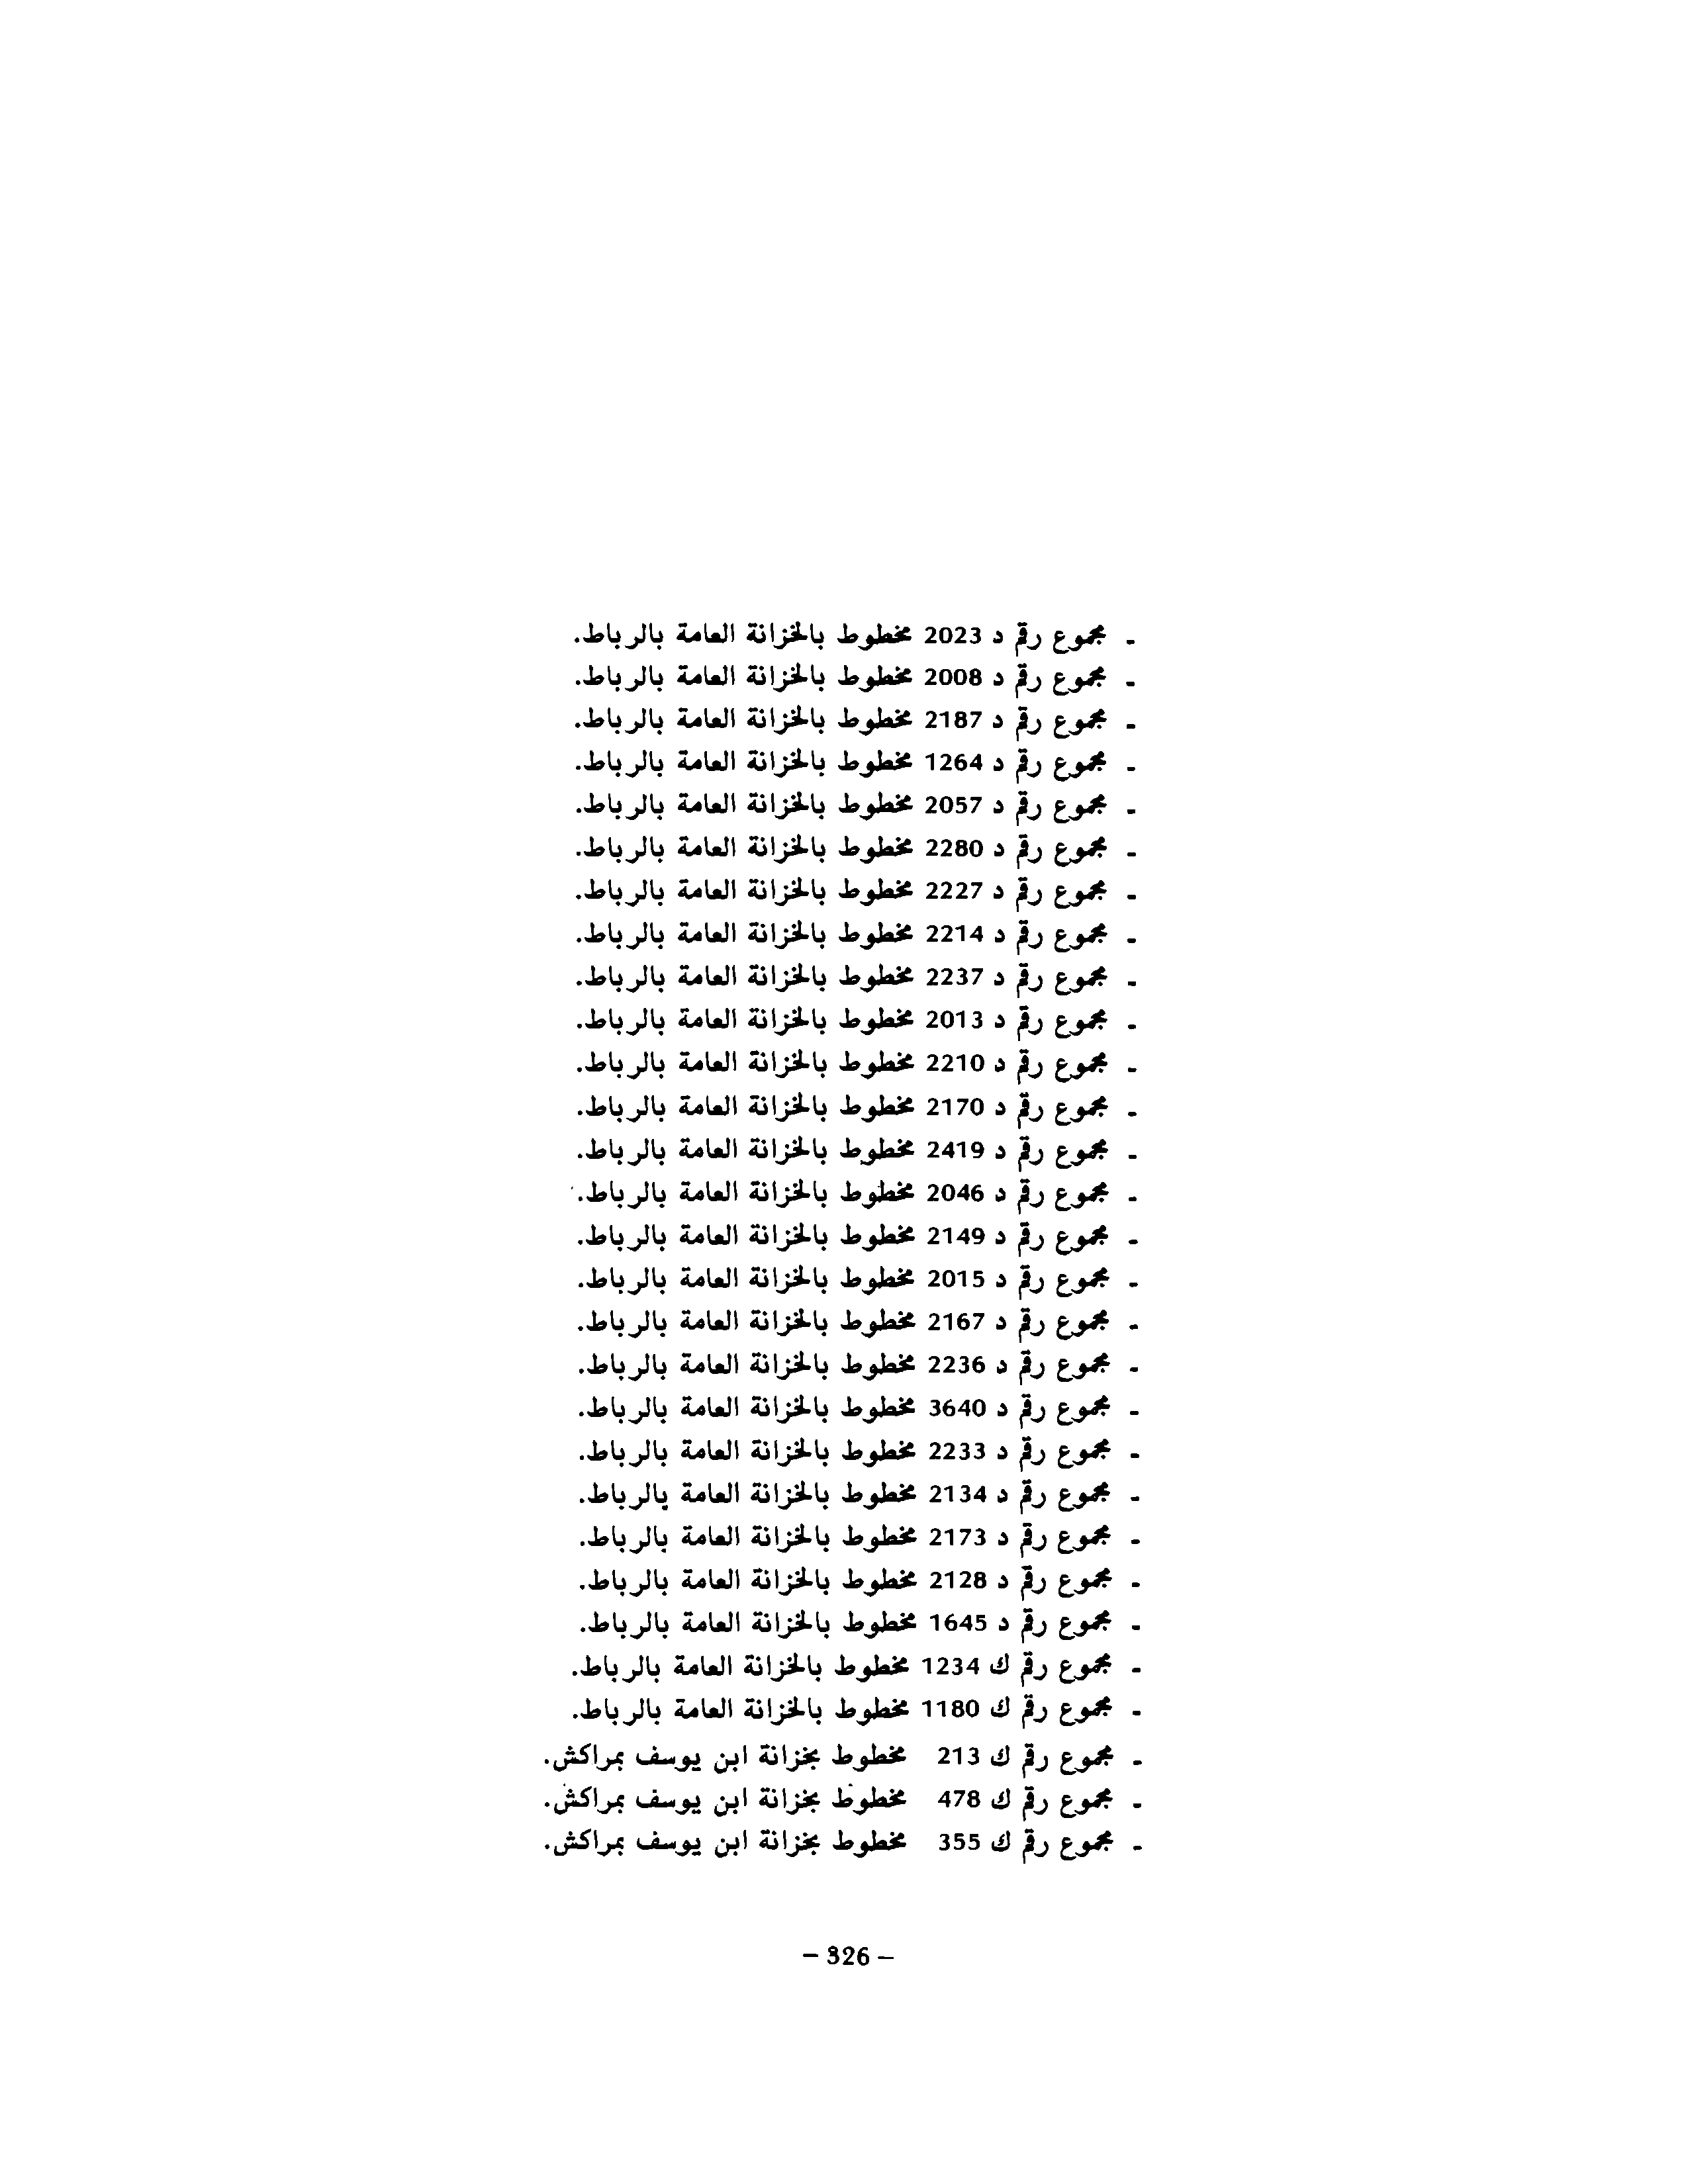 - مجموع رقم د 2023 مخطوط بالخزانة العامة بالرباط.
- مجموع رقم د 2008 مخطوط بالخزانة العامة بالرباط.
- مجموع رقم د 2187 مخطوط بالخزانة العامة بالرباط.
- مجموع رقم د 1264 مخطوط بالخزانة العامة بالرباط.
- مجموع رقم د 2057 مخطوط بالخزانة العامة بالرباط.
- مجموع رقم د 2280 مخطوط بالخزانة العامة بالرباط.
- مجموع رقم د 2227 مخطوط بالخزانة العامة بالرباط.
- مجموع رقم د 2214 مخطوط بالخزانة العامة بالرباط.
- مجموع رقم د 2237 مخطوط بالخزانة العامة بالرباط.
- مجموع رقم د 2013 مخطوط بالخزانة العامة بالرباط.
- مجموع رقم د 2210 مخطوط بالخزانة العامة بالرباط.
- مجموع رقم د 2170 مخطوط بالخزانة العامة بالرباط.
- مجموع رقم د 2419 مخطوط بالخزانة العامة بالرباط.
- مجموع رقم د 2046 مخطوط بالخزانة العامة بالرباط.
- مجموع رقم د 2149 مخطوط بالخزانة العامة بالرباط.
- مجموع رقم د 2015 مخطوط بالخزانة العامة بالرباط.
- مجموع رقم د 2167 مخطوط بالخزانة العامة بالرباط.
- مجموع رقم د 2236 مخطوط بالخزانة العامة بالرباط.
- مجموع رقم د 3640 مخطوط بالخزانة العامة بالرباط.
- مجموع رقم د 2233 مخطوط بالخزانة العامة بالرباط.
- مجموع رقم د 2134 مخطوط بالخزانة العامة بالرباط.
- مجموع رقم د 2173 مخطوط بالخزانة العامة بالرباط.
- مجموع رقم د 2128 مخطوط بالخزانة العامة بالرباط.
- مجموع رقم د 1645 مخطوط بالخزانة العامة بالرباط.
- مجموع رقم ك 1234 مخطوط بالخزانة العامة بالرباط.
- مجموع رقم ك 1180 مخطوط بالخزانة العامة بالرباط.
- مجموع رقم ك 213 مخطوط بخزانة ابن يوسف بمراكش.
- مجموع رقم ك 478 مخطوط بخزانة ابن يوسف بمراكش.
- مجموع رقم ك 355 مخطوط بخزانة ابن يوسف بمراكش.
- 326 -